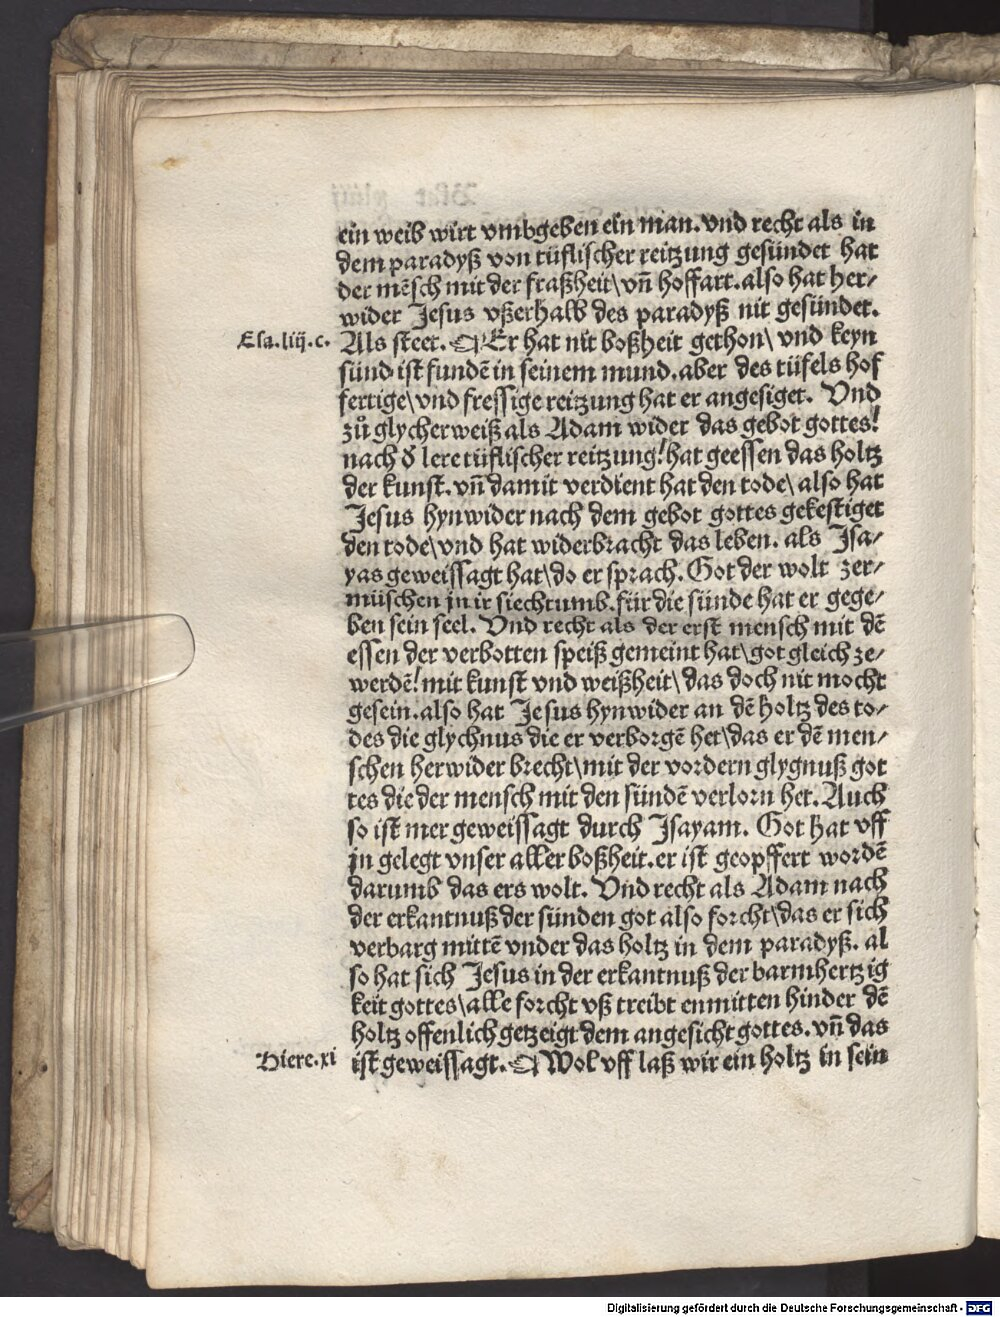 ein weib wirt vmbgeben ein man. vnd recht als in
dem paradyß von tüflischer reitzung gesündet hat
der mēsch mit der fraßheit\ vn̄ hoffart. also hat her/
wider Jesus vßerhalb des paradyß nit gesündet.
Esa. liij. c. Als steet. Er hat nit boßheit gethon\ vnd keyn
sünd ist fundē in seinem mund. aber des tüfels hof
fertige\ vnd fressige reitzung hat er angesiget. Vnd
zů glycherweiß als Adam wider das gebot gottes!
nach d̄ lere tüflischer reitzung! hat geessen das holtz
der kunst. vn̄ damit verdient hat den tode\ also hat
Jesus hynwider nach dem gebot gottes gekestiget
den tode\ vnd hat widerbracht das leben. als Jsa/
yas geweissagt hat\ do er sprach. Got der wolt zer/
müschen jn ir siechtumb. für die sünde hat er gege/
ben sein seel. Vnd recht als der erst mensch mit dē
essen der verbotten speiß gemeint hat\ got gleich ze/
werdē! mit kunst vnd weißheit\ das doch nit mocht
gesein. also hat Jesus hynwider an dē holtz des to/
des die glychnus die er verborgē het\ das er dē men/
schen herwider brecht\ mit der vordern glygnuß got
tes die der mensch mit den sündē verlorn het. Auch
so ist mer geweissagt durch Jsayam. Got hat vff
jn gelegt vnser aller boßheit. er ist geopffert wordē
darumb das ers wolt. Vnd recht als Adam nach
der erkantnuß der sünden got also forcht\ das er sich
verbarg mittē vnder das holtz in dem paradyß. al
so hat sich Jesus in der erkantnuß der barmhertzig
keit gottes\ alle forcht vß treibt enmitten hinder dē
holtz offenlich getzeigt dem angesicht gottes. vn̄ das
Hiere. xi ist geweissagt. Wol vff laß wir ein holtz in sein
Digitalisierung gefördert durch die Deutsche Forschungsgemeinschaft - DFG